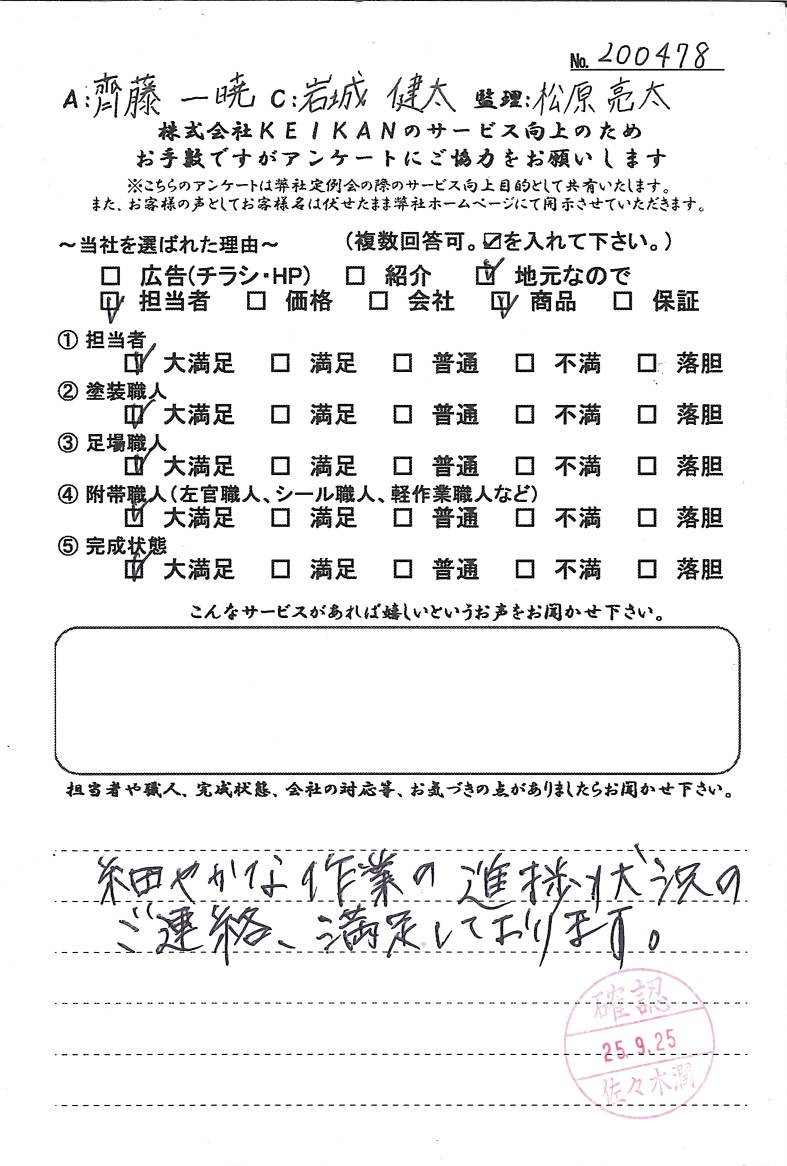 No. 200478
A:齊藤 一暁 C:岩城 健太 監理:松原 亮太
株式会社KEIKANのサービス向上のため
お手数ですがアンケートにご協力をお願いします
※こちらのアンケートは弊社定例会の際のサービス向上目的として共有いたします。
また、お客様の声としてお客様名は伏せたまま弊社ホームページにて開示させていただきます。
~当社を選ばれた理由~ (複数回答可。☑を入れて下さい。)
□ 広告(チラシ・HP) □ 紹介 ☑ 地元なので
☑ 担当者 □ 価格 □ 会社 ☑ 商品 □ 保証
① 担当者
☑ 大満足 □ 満足 □ 普通 □ 不満 □ 落胆
② 塗装職人
☑ 大満足 □ 満足 □ 普通 □ 不満 □ 落胆
③ 足場職人
☑ 大満足 □ 満足 □ 普通 □ 不満 □ 落胆
④ 附帯職人(左官職人、シール職人、軽作業職人など)
☑ 大満足 □ 満足 □ 普通 □ 不満 □ 落胆
⑤ 完成状態
☑ 大満足 □ 満足 □ 普通 □ 不満 □ 落胆
こんなサービスがあれば嬉しいというお声をお聞かせ下さい。
担当者や職人、完成状態、会社の対応等、お気づきの点がありましたらお聞かせ下さい。
細やかな作業の進捗状況の
ご連絡、満足しております。
確認
25.9.25
佐々木潤